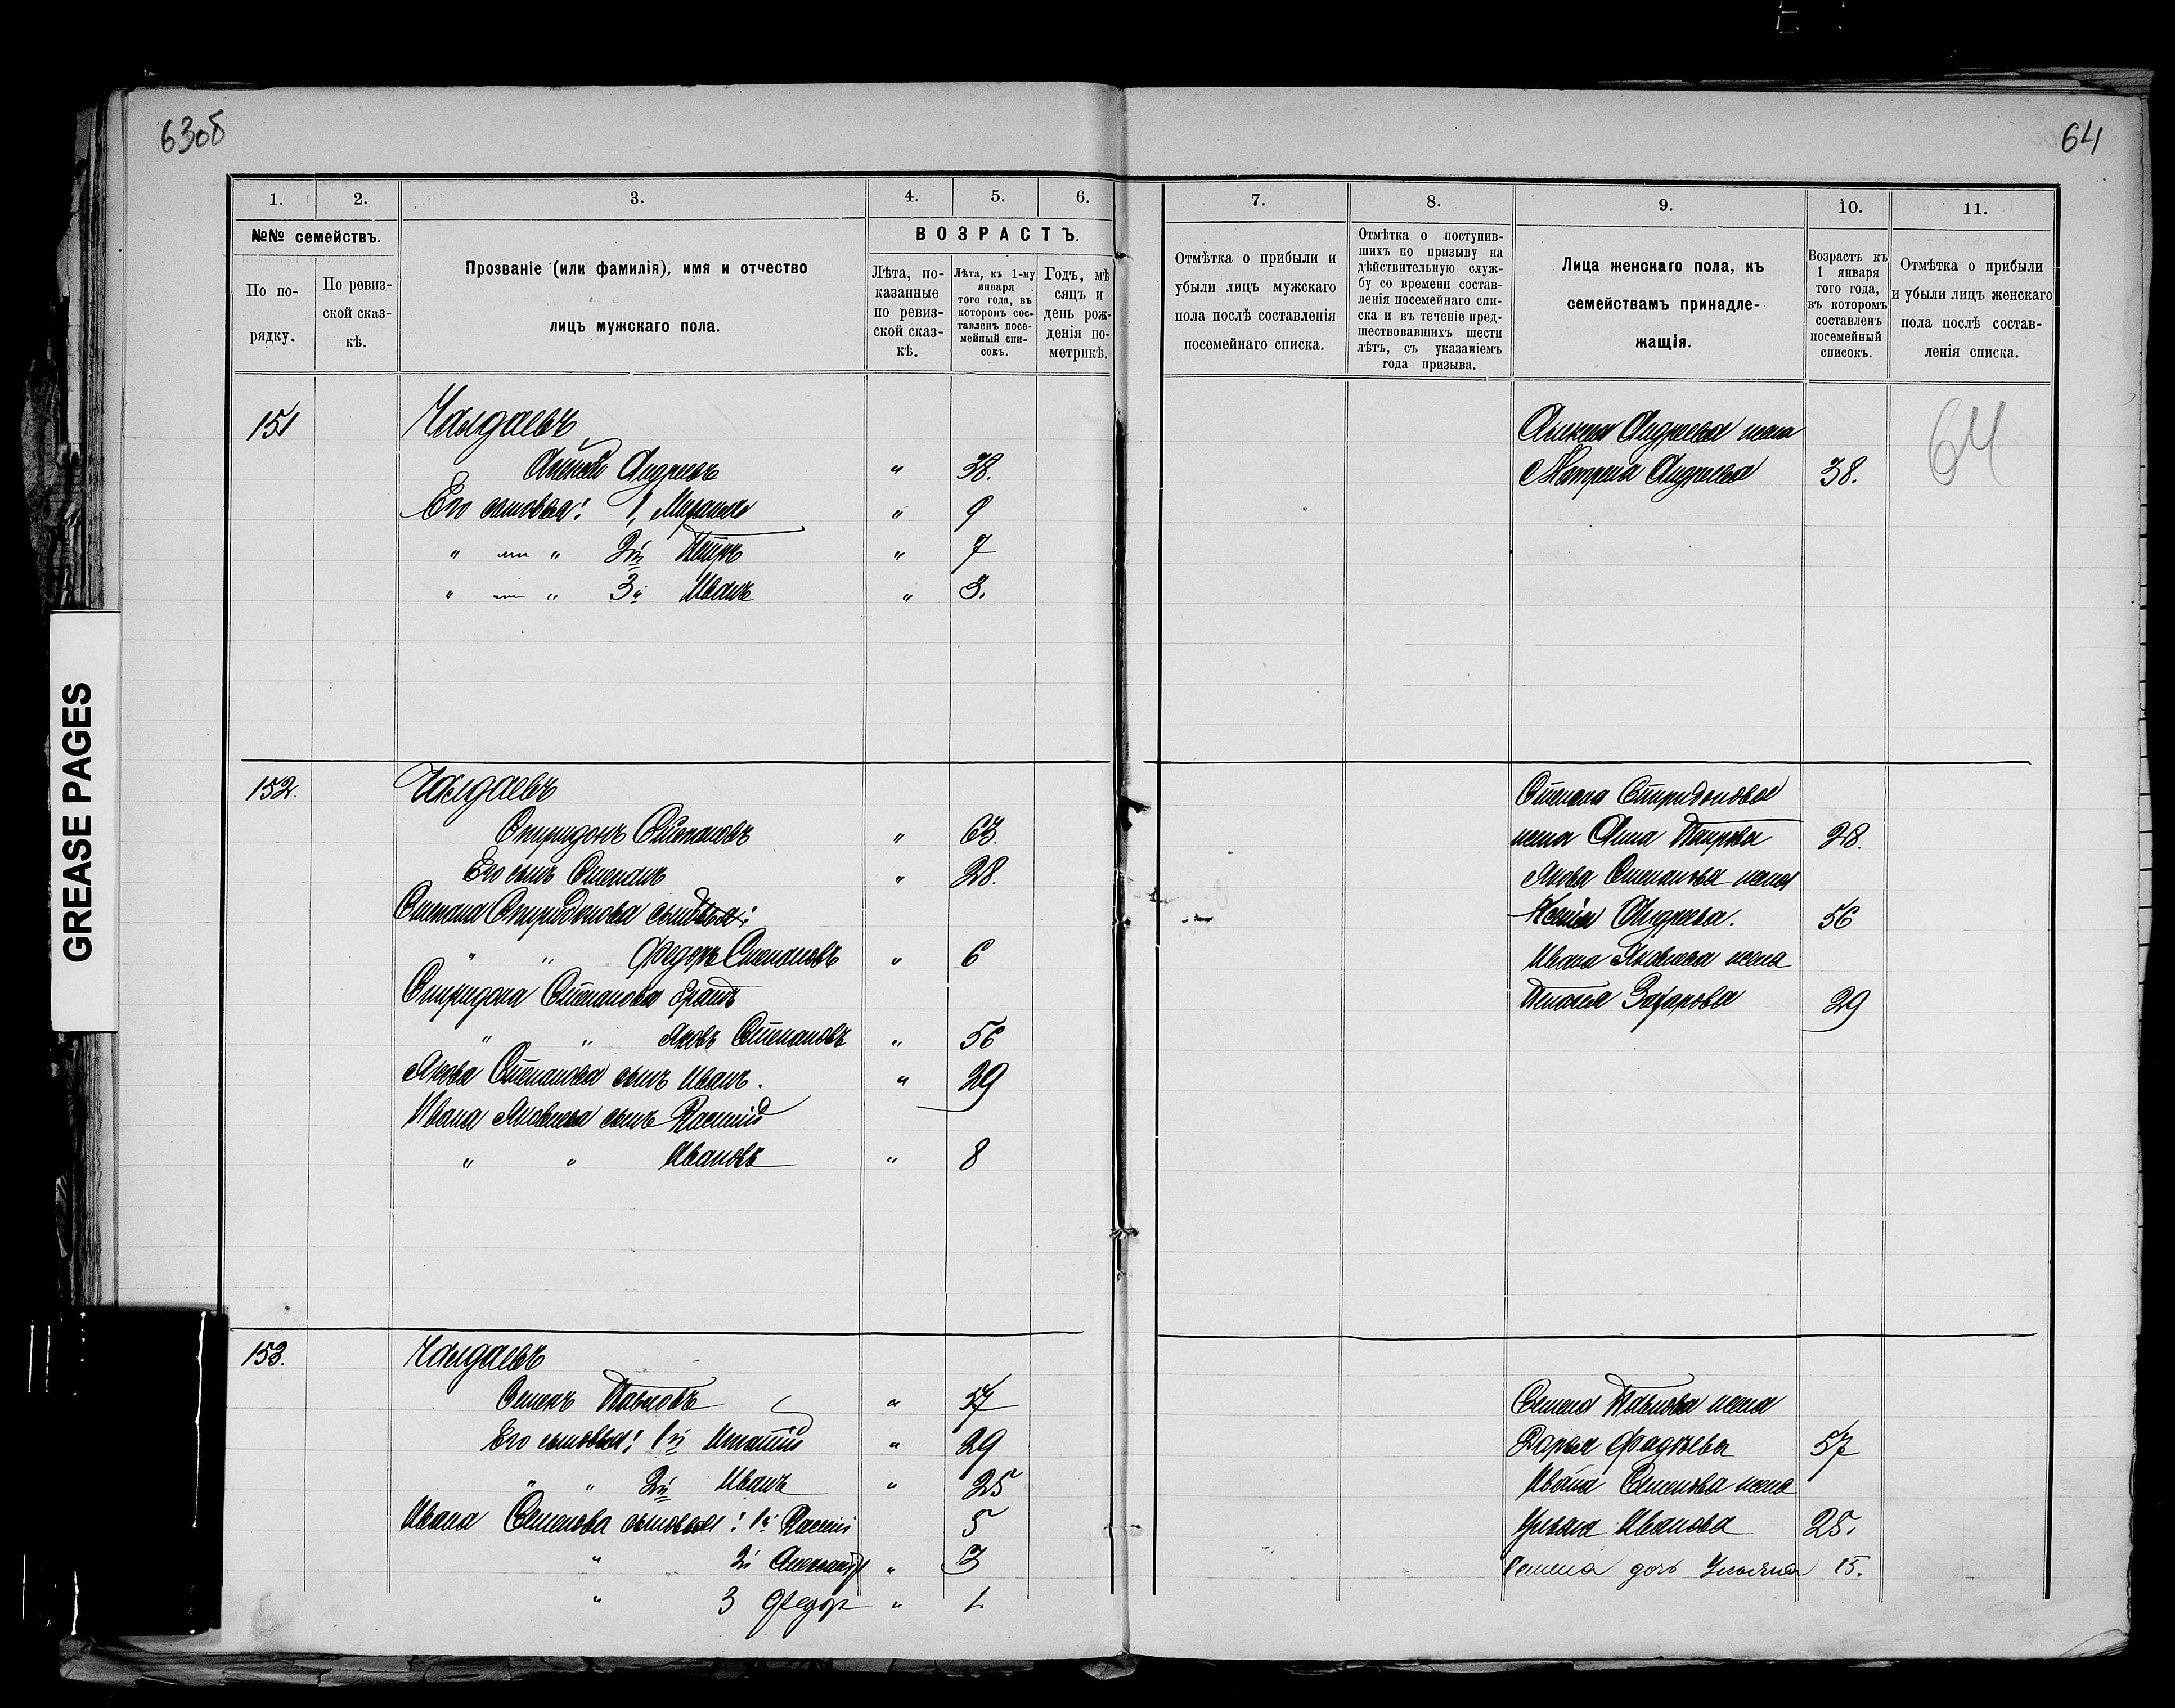 63об
64
1.
2.
3.
4.
5.
6.
№№ семействъ.
ВОЗРАСТЪ.
По по-
рядку.
По ревиз-
ской сказ-
кѣ.
Прозваніе (или фамилія), имя и отчество
лицъ мужскаго пола.
Лѣта, по-
казанные
по ревиз-
ской сказ-
кѣ.
Лѣта, къ 1-му
января
того года, въ
которомъ сос-
тавленъ посе-
мейный спи-
сокъ.
Годъ, мѣ
сяцъ и
день рож-
денія по-
метрикѣ.
7.
8.
9.
10.
11.
Отмѣтка о прибыли и
убыли лицъ мужскаго
пола послѣ составленія
посемейнаго списка.
Отмѣтка о поступив-
шихъ по призыву на
дѣйствительную служ-
бу со времени состав-
ленія посемейнаго спи-
ска и въ теченіе пред-
шествовавшихъ шести
лѣтъ, съ указаніемъ
года призыва.
Лица женскаго пола, къ
семействамъ принадле-
жащія.
Возрастъ къ
1 января
того года,
въ которомъ
составленъ
посемейный
списокъ.
Отмѣтка о прибыли
и убыли лицъ женскаго
пола послѣ состав-
ленія списка.
151 Чалдаевъ
Андреевъ " 38.
Его сыновья: 1, " 9
" " 2й Петръ " 7
" " 3й Иванъ " 3.
Андреева жена
Матрена Андреева 38.
64
152. Чалдаевъ
Спиридонъ Степановъ " 63.
Его сынъ Степанъ " 28.
Степана Спиридонова сыновья:
" " Федоръ Степановъ " 6
Спиридона Степанова братъ
" " Яковъ Степановъ " 56
Якова Степанова сынъ Иванъ. " 29
Ивана Яковлева сынъ
" " Ивановъ " 8
Степана Спиридонова
жена Анна Петрова 28.
Якова Степанова жена
Ксенія Андреева. 56
Ивана Яковлева жена
Захарова 29
153. Чалдаевъ
Семенъ Павловъ " 57
Его сыновья: 1й Игнатій " 29
" " 2й Иванъ " 25
Ивана Семенова сыновья: 1й 5
" 2й Александръ " 3
" 3 Федоръ " 1.
Семена Павлова жена
Дарья Фадѣева 57
Ивана Семенова жена
Ульяна Иванова 25.
Семена дочь Ульяна 15.
GREASE PAGES